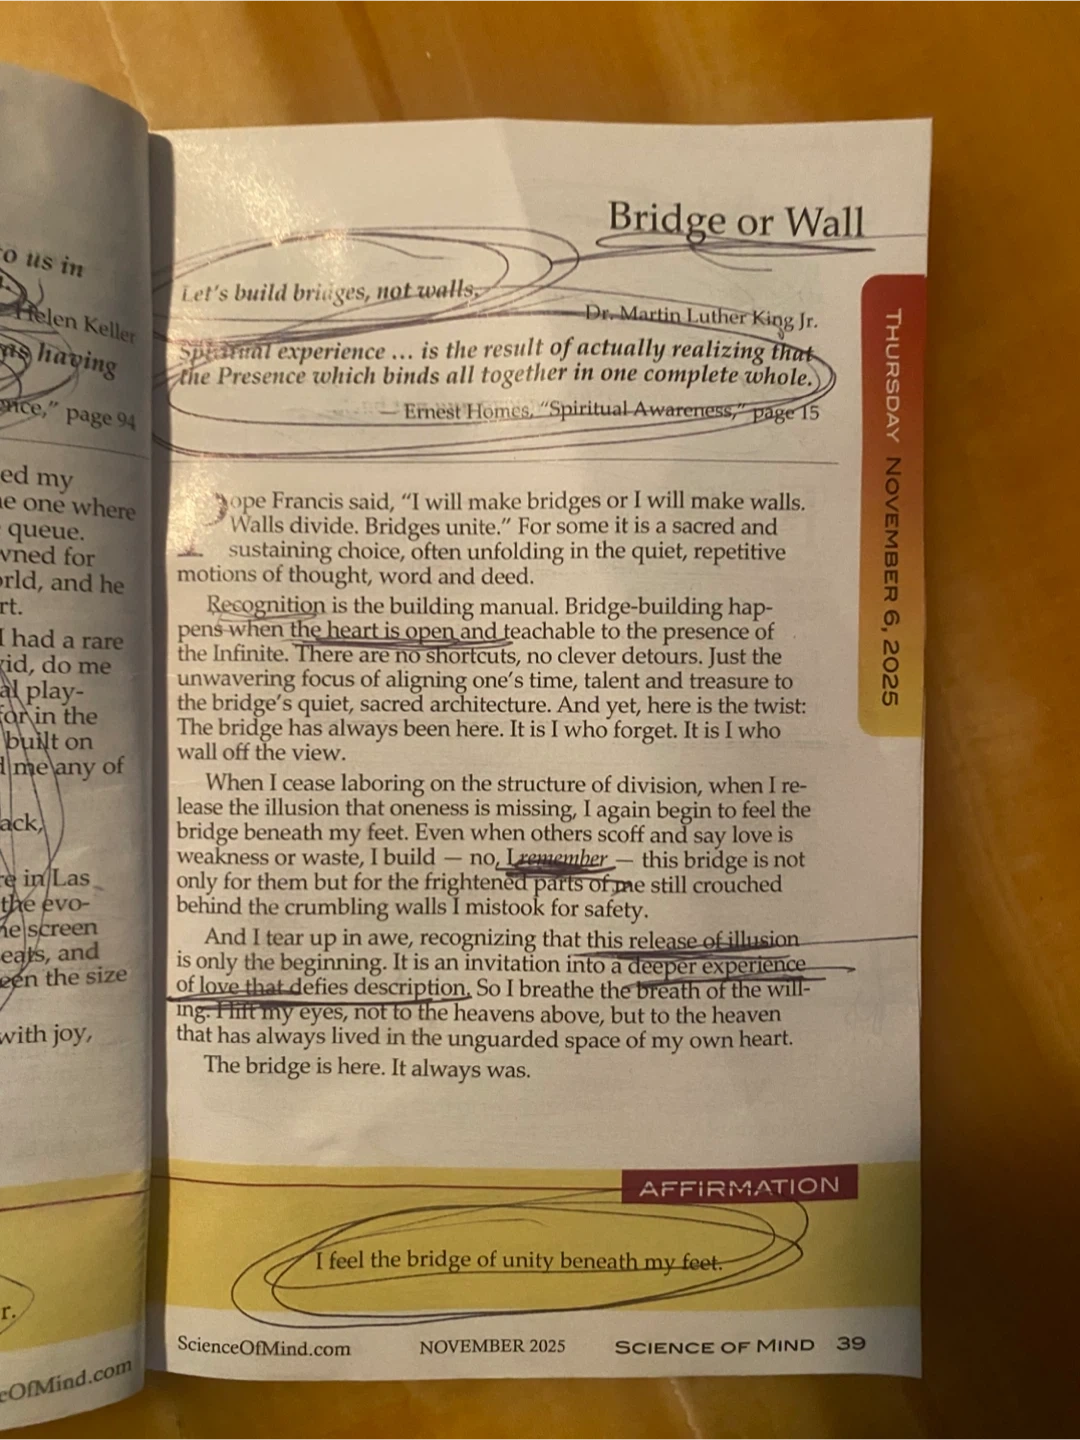 o us in
Helen Keller
as having
nce," page 94
ed my
e one where
queue.
wned for
orld, and he
rt.
I had a rare
kid, do me
al play-
for in the
built on
me any of
ack,
re in Las
the evo-
he screen
eats, and
een the size
with joy,
r.
eOfMind.com
Bridge or Wall
Let's build bridges, not walls.
Dr. Martin Luther King Jr.
Spiritual experience ... is the result of actually realizing that
the Presence which binds all together in one complete whole.
— Ernest Homes, "Spiritual Awareness," page 15
THURSDAY NOVEMBER 6, 2025
Pope Francis said, "I will make bridges or I will make walls.
Walls divide. Bridges unite." For some it is a sacred and
sustaining choice, often unfolding in the quiet, repetitive
motions of thought, word and deed.
Recognition is the building manual. Bridge-building hap-
pens when the heart is open and teachable to the presence of
the Infinite. There are no shortcuts, no clever detours. Just the
unwavering focus of aligning one's time, talent and treasure to
the bridge's quiet, sacred architecture. And yet, here is the twist:
The bridge has always been here. It is I who forget. It is I who
wall off the view.
When I cease laboring on the structure of division, when I re-
lease the illusion that oneness is missing, I again begin to feel the
bridge beneath my feet. Even when others scoff and say love is
weakness or waste, I build — no, I remember — this bridge is not
only for them but for the frightened parts of me still crouched
behind the crumbling walls I mistook for safety.
And I tear up in awe, recognizing that this release of illusion
is only the beginning. It is an invitation into a deeper experience
of love that defies description. So I breathe the breath of the will-
ing. I lift my eyes, not to the heavens above, but to the heaven
that has always lived in the unguarded space of my own heart.
The bridge is here. It always was.
AFFIRMATION
I feel the bridge of unity beneath my feet.
ScienceOfMind.com NOVEMBER 2025 SCIENCE OF MIND 39